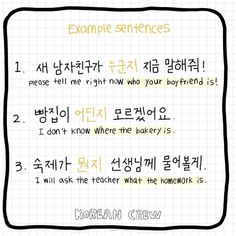 Example sentences
1. 새 남자친구가 누군지 지금 말해줘!
please tell me right now who your boyfriend is!
2. 빵집이 어딘지 모르겠어요.
I don't know where the bakery is.
3. 숙제가 뭔지 선생님께 물어볼게.
I will ask the teacher what the homework is.
KOREAN CREW